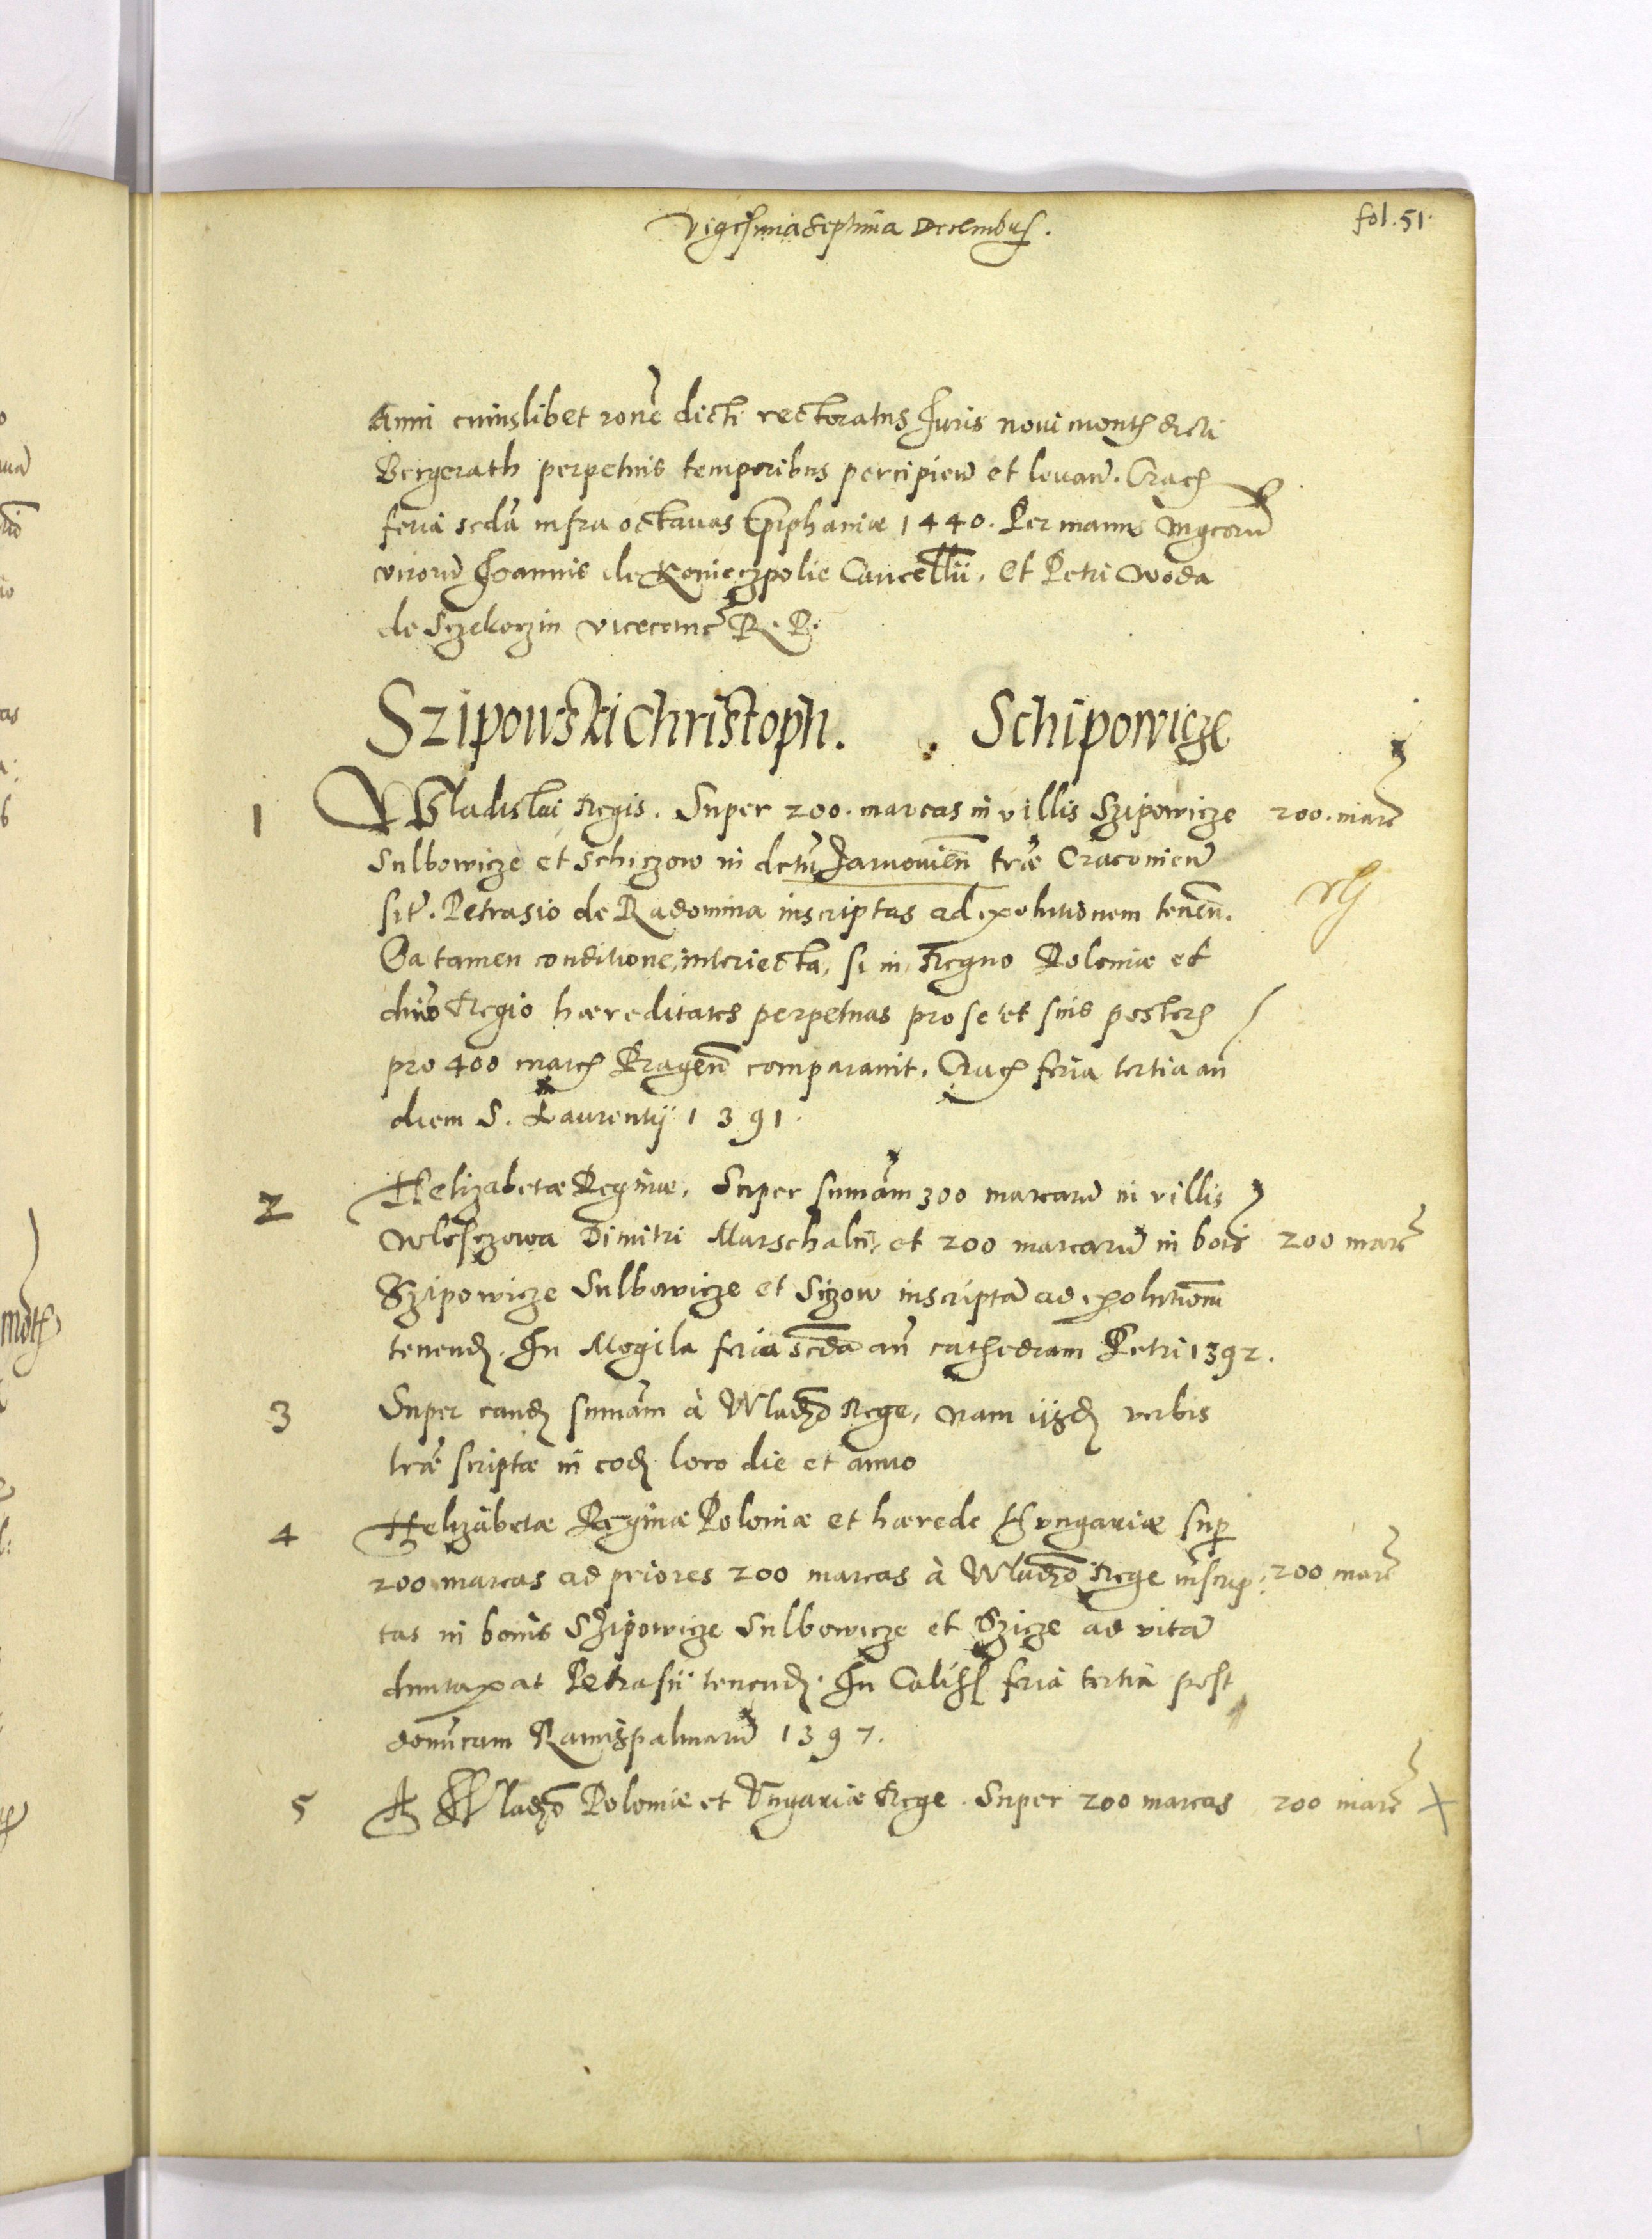 Vigesima Septima Decembris.
fol. 51.
Anni cuiuslibet rone dicti rectoratus Juris noui month dicti
Bergerath perpetuis temporibus percipien et leuan. Crac
feria scda infra octauas Epiphaniæ 1440. Per manus Mgcoru
viroru Joannis de Konieczpolie Cancellii, et Petri Woda
de Sczekoczin vicecanc R. P.
Szipowski Christoph. Schipowicze
1 Wladislai Regis. Super 200. marcas in villis Szipowicze 200. marc
Sulbowicze et Schiczow in dctu Jarnouien træ Cracouien
sit. Petrasio de Radomina inscriptas ad exolutionem tenen.
Ea tamen conditione, interiecta, si in Regno Poloniæ et
dnio Regio hæreditates perpetuas pro se et suis poster
pro 400 marc Pragen comparauit. Crac feria tertia an
diem S. Laurentij 1391.
2 Helizabetæ Reginæ. Super sumam 300 marcaru in villis
Wlosczowa Dimitri Marschalci, et 200 marcaru in bois 200 marc
Szipowicze Sulbowicze et Siczow inscripta ad exolutionem
tenend. In Mogila feria scda an cathedram Petri 1392.
3 Super eand sumam à Wladzo Rege, nam ijsd verbis
træ scriptæ in eod loco die et anno
4 Helizabetæ Reginæ Poloniæ et hærede Hungariæ sup
200 marcas ad priores 200 marcas à Wladzo Rege inscrip: 200 marc
tas in bonis Szipowicze Sulbowicze et Szicze ad vita
duntaxat Petrasii tenend. In Calis feria tertia post
donicam Ramispalmaru 1397.
5 A Wladzo Poloniæ et Vngariæ Rege. Super 200 marcas 200 marc